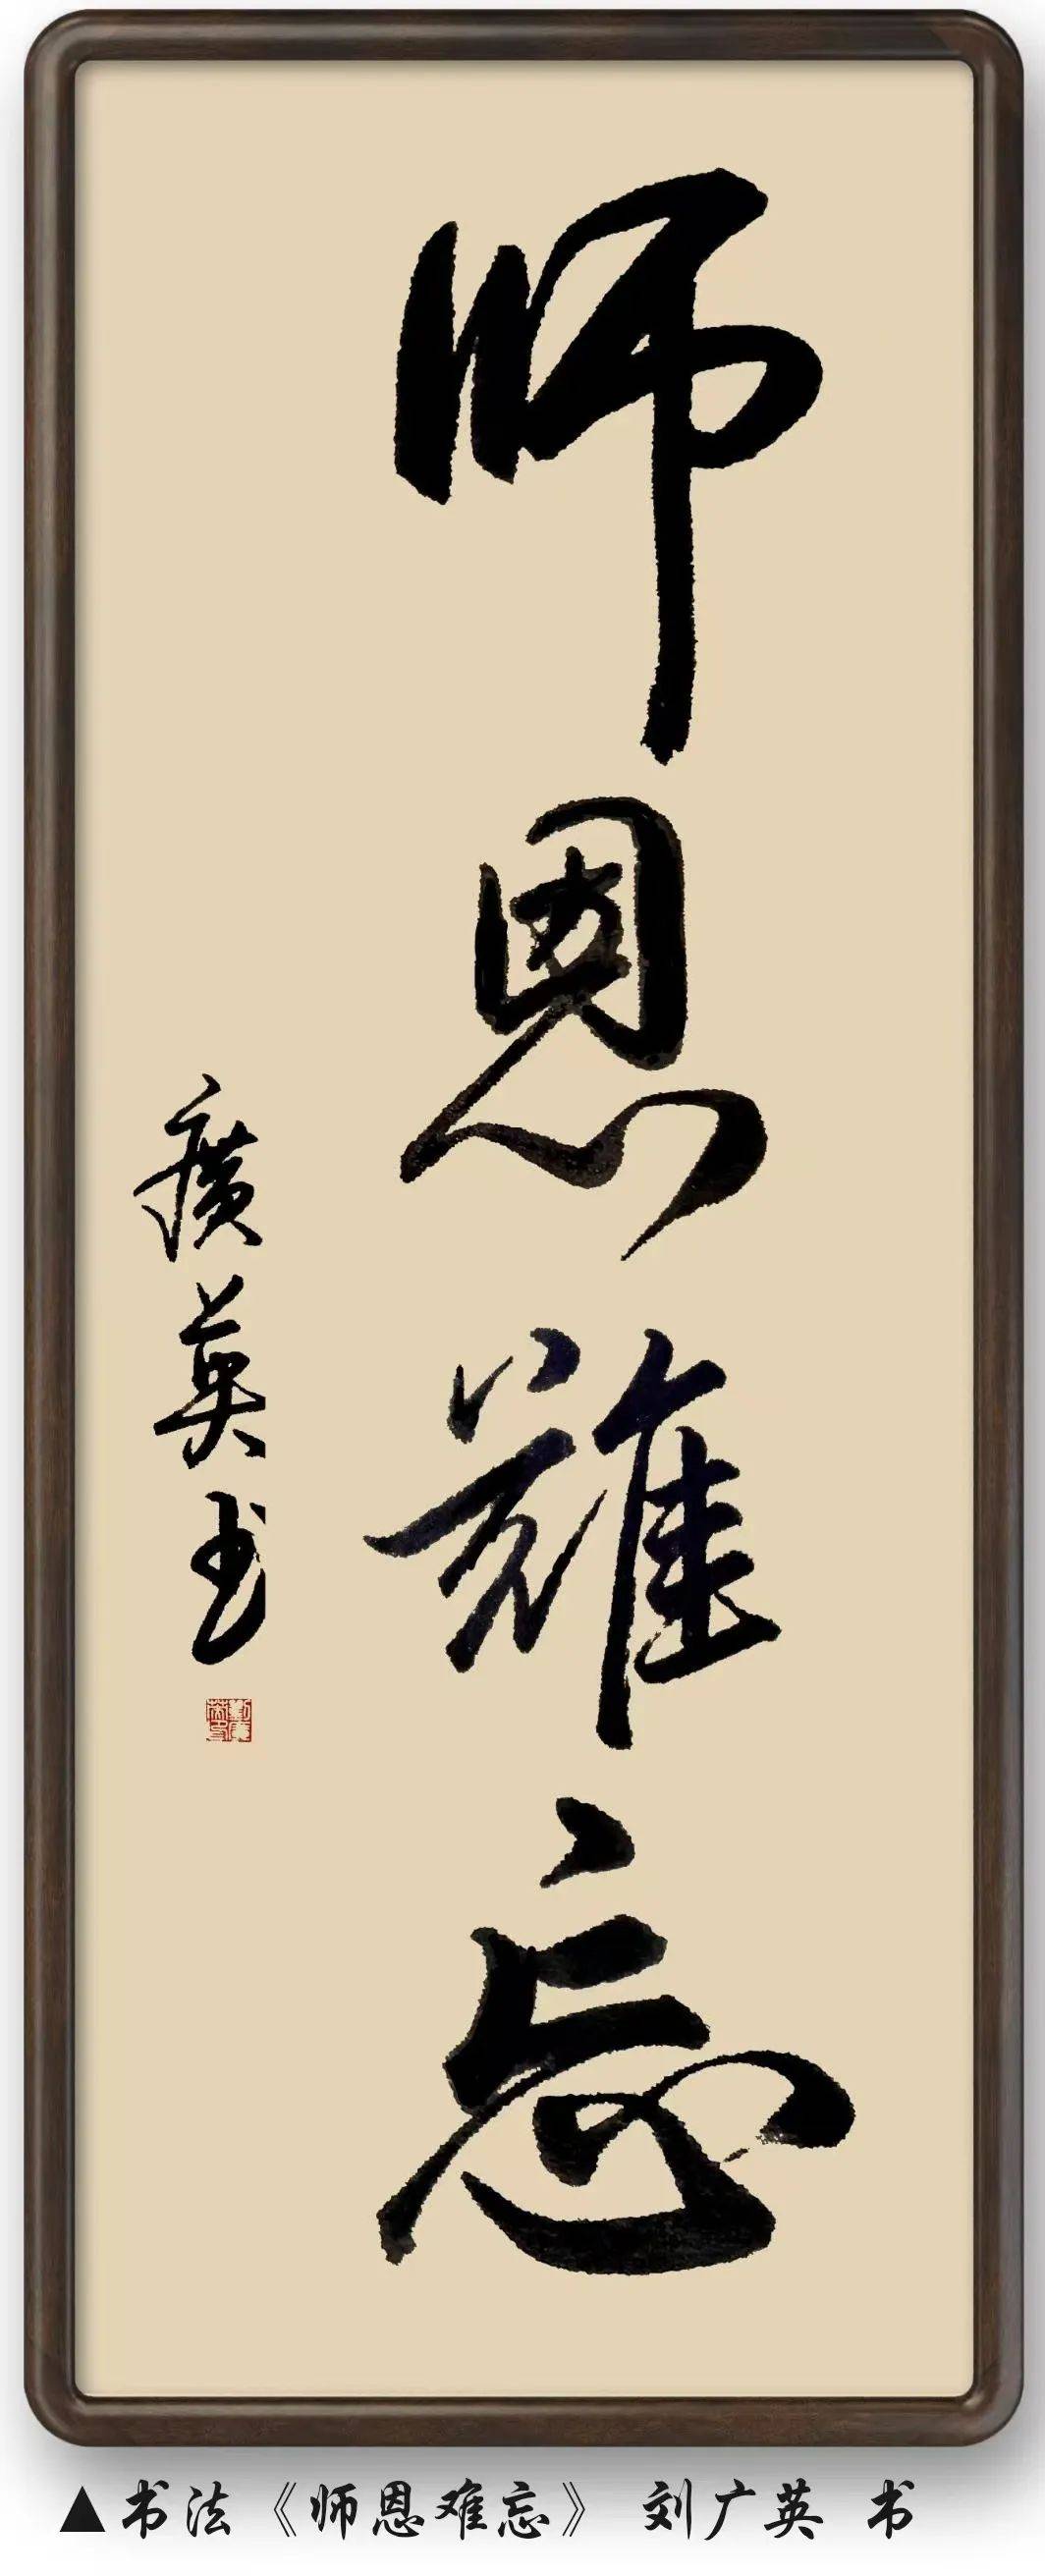 师恩難忘
廣英书
▲书法《师恩难忘》 刘广英 书